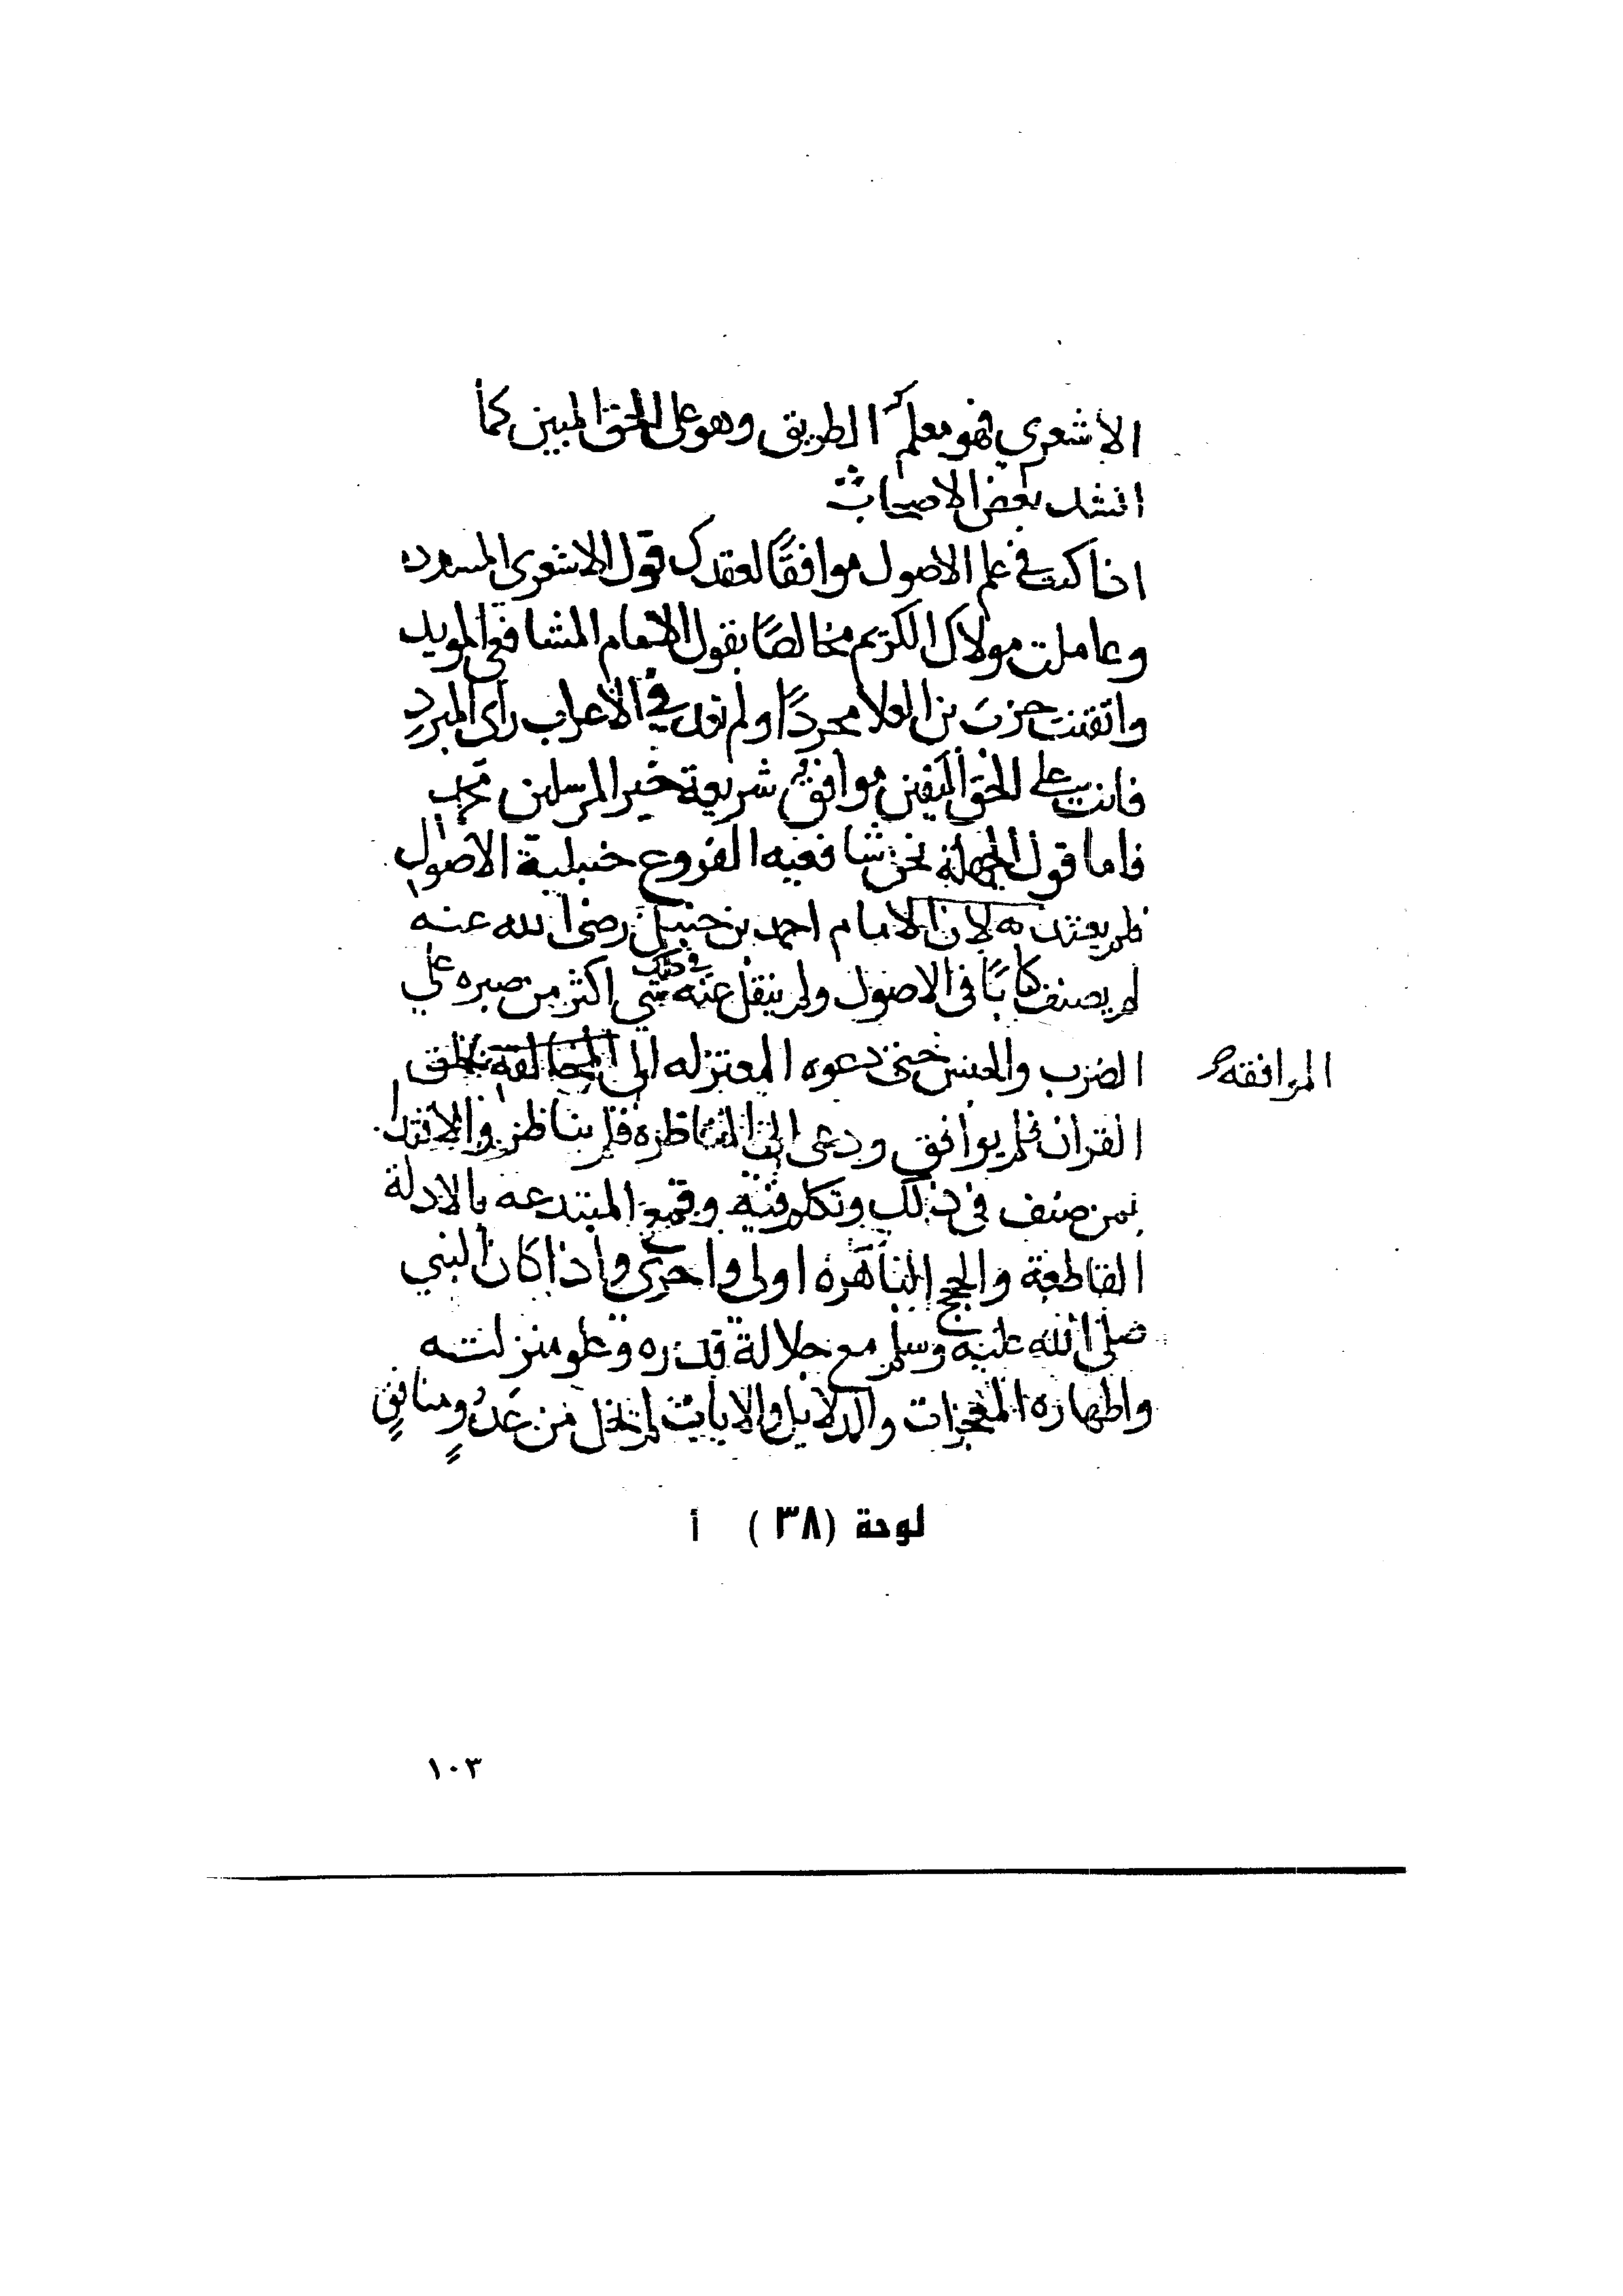 الاشعري فهو معلم الطريق وهو على الحق المبين كما
انشد بعض الاصحاب
اذا كنت في علم الاصول موافقًا لعقدك قول الاشعرى المسدد
وعاملت مولاك الكريم مخالصًا بقول الامام الشافعي المويد
واتقنت حزب بن العلا مجردًا ولم تعد في الاعراب راى المبرد
فانت على الحق اليقين موافق شريعة خير المرسلين محمد
فاما قول الجهلة نحن شافعيه الفروع حنبلية الاصول
فلم يعتد به لان الامام احمد بن حنبل رضى الله عنه
لم يصنف كتابًا فى الاصول ولم ينقل عنه في ذلك شي اكثر من صبره علي
الضرب والحبس حين دعوه المعتزله الى المخالفة بخلق
الموافقه
القران فلم يوافق ودعى الى المناظره فلم يناظر والاقتدا
بمن صنف فى ذلك وتكلم فيه وقمع المبتدعه بالادلة
القاطعة والحجج الباهره اولى واحرى واذا كان النبي
صلى الله عليه وسلم مع جلالة قدره وعلو منزلته
واظهاره المعجزات والدلايل والايات لم تخل من عدوٍ ومنافقٍ
لوحة (٣٨) أ
١٠٣